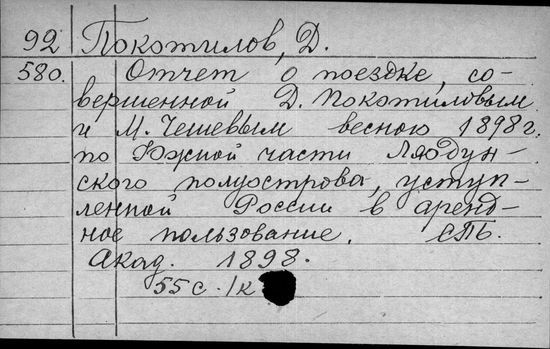 92 Покотилов, Д.
580. Отчет о поездке, со-
вершенной Д. Покотиловым
и М. Чешевым весною 1898 г.
по Южной части Ляодун-
ского полуострова, уступ-
ленной России в аренд-
ное пользование. СПБ.
Акад. 1898.
55 с. 1к